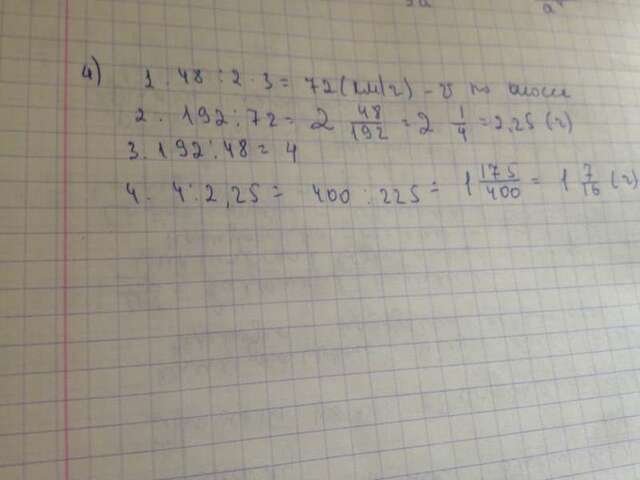 4)
1. 48 : 2 · 3 = 72 (км/ч) - v по шоссе
2. 192 : 72 = 2 48/192 = 2 1/4 = 2,25 (ч)
3. 192 : 48 = 4
4. 4 : 2,25 = 400 : 225 = 1 175/400 = 1 7/16 (ч)